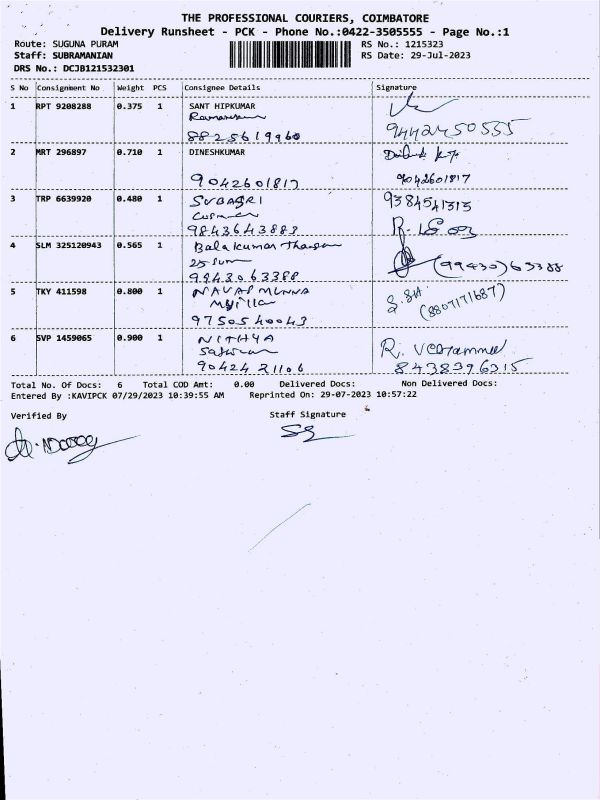 THE PROFESSIONAL COURIERS, COIMBATORE
Delivery Runsheet - PCK - Phone No.:0422-3505555 - Page No.:1
Route: SUGUNA PURAM RS No.: 1215323
Staff: SUBRAMANIAN RS Date: 29-Jul-2023
DRS No.: DCJB121532301
S No Consignment No Weight PCS Consignee Details Signature
1 RPT 9208288 0.375 1 SANT HIPKUMAR
8825619960 9442450555
2 MRT 296897 0.710 1 DINESHKUMAR
9042601817 9042601817
3 TRP 6639920 0.480 1 SUBAGRI 9384541313
9843643883
4 SLM 325120943 0.565 1 Balakumar
9943063388 (99430)63388
5 TKY 411598 0.800 1 NAVAS MUNNA
9750540043 (8807171687)
6 SVP 1459065 0.900 1 NITHYA
9042421106 8438396315
Total No. Of Docs: 6 Total COD Amt: 0.00 Delivered Docs: Non Delivered Docs:
Entered By :KAVIPCK 07/29/2023 10:39:55 AM Reprinted On: 29-07-2023 10:57:22
Verified By Staff Signature